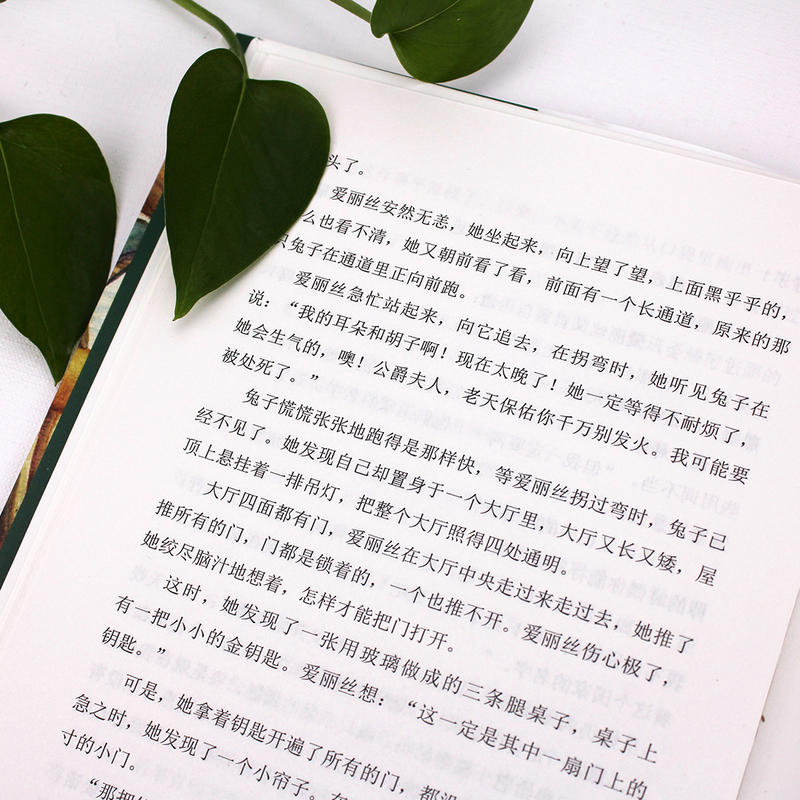 头了。
爱丽丝安然无恙，她坐起来，向上望了望，上面黑乎乎的，
么也看不清，她又朝前看了看，前面有一个长通道，原来的那
只兔子在通道里正向前跑。
爱丽丝急忙站起来，向它追去，在拐弯时，她听见兔子在
说：“我的耳朵和胡子啊！现在太晚了！她一定等得不耐烦了，
她会生气的，噢！公爵夫人，老天保佑你千万别发火。我可能要
被处死了。”
兔子慌慌张张地跑得是那样快，等爱丽丝拐过弯时，兔子已
经不见了。她发现自己却置身于一个大厅里，大厅又长又矮，屋
顶上悬挂着一排吊灯，把整个大厅照得四处通明。
大厅四面都有门，爱丽丝在大厅中央走过来走过去，她推了
推所有的门，门都是锁着的，一个也推不开。爱丽丝伤心极了，
她绞尽脑汁地想着，怎样才能把门打开。
这时，她发现了一张用玻璃做成的三条腿桌子，桌子上
有一把小小的金钥匙。爱丽丝想：“这一定是其中一扇门上的
钥匙。”
可是，她拿着钥匙开遍了所有的门，都没
急之时，她发现了一个小帘子。在
寸的小门。
“那把